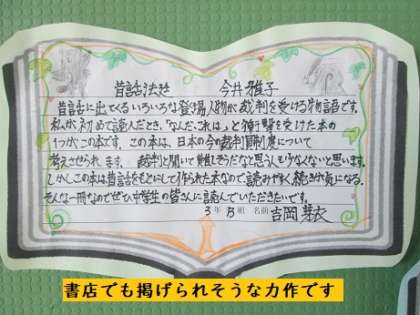 昔話法廷　今井雅子
昔話に出てくるいろいろな登場人物が裁判を受ける物語です。
私が初めて読んだとき、「なんだこれは」と衝撃を受けた本の
1つがこの本です。この本は、日本の今の裁判制度について
考えさせられます。裁判と聞いて難しそうだなと思う人も少なくないと思います。
しかしこの本は昔話をもとにして作られた本なので読みやすく続きが気になる。
そんな一冊なのでぜひ中学生の皆さんに読んでいただきたいです。
3年B組 名前 吉岡芽衣
書店でも掲げられそうな力作です